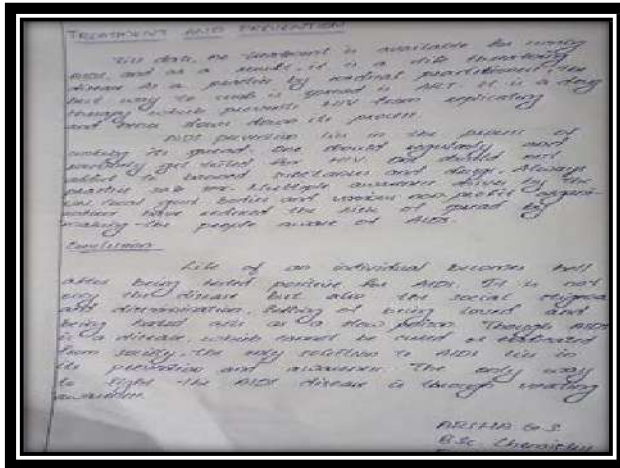 TREATMENT AND PREVENTION
Till date, no treatment is available for curing
AIDS, and as a result, it is a life threatening
disease. As a practice by medical practitioners, the
best way to curb is spread is ART. It is a drug
therapy which prevents HIV from replicating
and slow down its process.
AIDS prevention lies in the process of
its spread. One should regularly and
routinely get tested for HIV. One should not
addict to banned substances and drugs. Always
practice safe sex. Multiple awareness drives by the
local govt. bodies and various non profit organi-
have reduced the risk of spread by
making the people aware of AIDS.
Conclusion
Life of an individual becomes hell
after being tested positive for AIDS. It is not
only the disease but also the social stigma
and discrimination, of being loved and
being hated acts as a slow poison. Though AIDS
is a disease, which cannot be cured or
from society, the only solution to AIDS lies in
its prevention and awareness. The only way
to fight the AIDS disease is through creating
awareness.
ARSHA G.S.
B.Sc. Chemistry